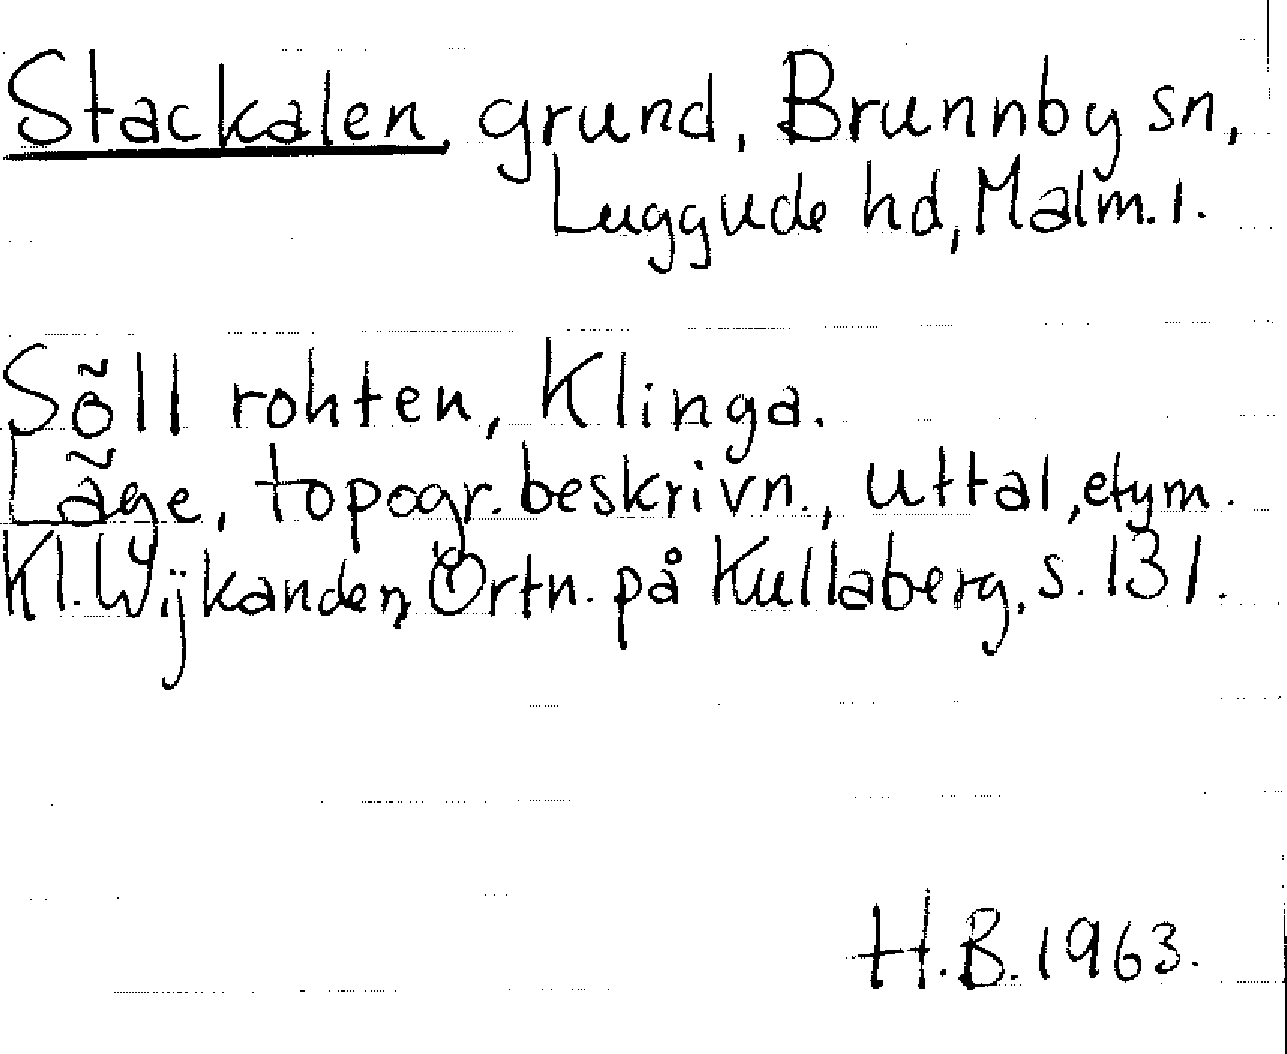 Stackalen, grund, Brunnby sn,
Luggude hd, Malm. l.
Söll rohten, Klinga.
Läge, topogr. beskrivn., uttal, etym.
Kl. Wijkander, Ortn. på Kullaberg, s. 131.
H.B. 1963.